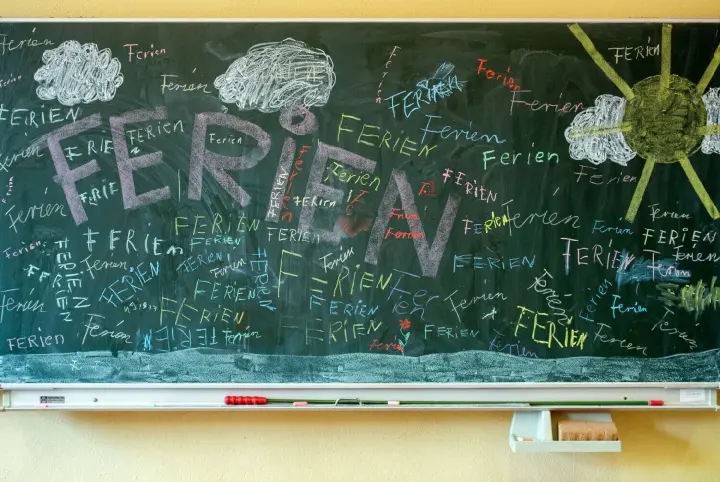 Ferien
Ferien
FERIEN
Ferien
Ferien
Ferien
Ferien
FERIEN
FERIEN
Ferien
FERIEN
Ferien
Ferien
FERiEN
FERIEN
Ferien
FERIEN
Ferien
FERIEN
Ferien
Ferien
Ferien
FERIEN
FERIEN
FERIEN
Ferien
Ferien
Ferien
FERIEN
FERIEN
Ferien
Ferien
FERIEN
FERIEN
FERIEN
FERIEN
FERIEN
FERIEN
Ferien
FERIEN
Ferien
FERIEN
Ferien
FERIEN
FERIEN
FERIEN
Ferien
FERIEN
Ferien
Ferien
FERIEN
Ferien
FERIEN
Ferien
FERIEN
FERIEN
FERIEN
FERIEN
Ferien
Ferien
Ferien